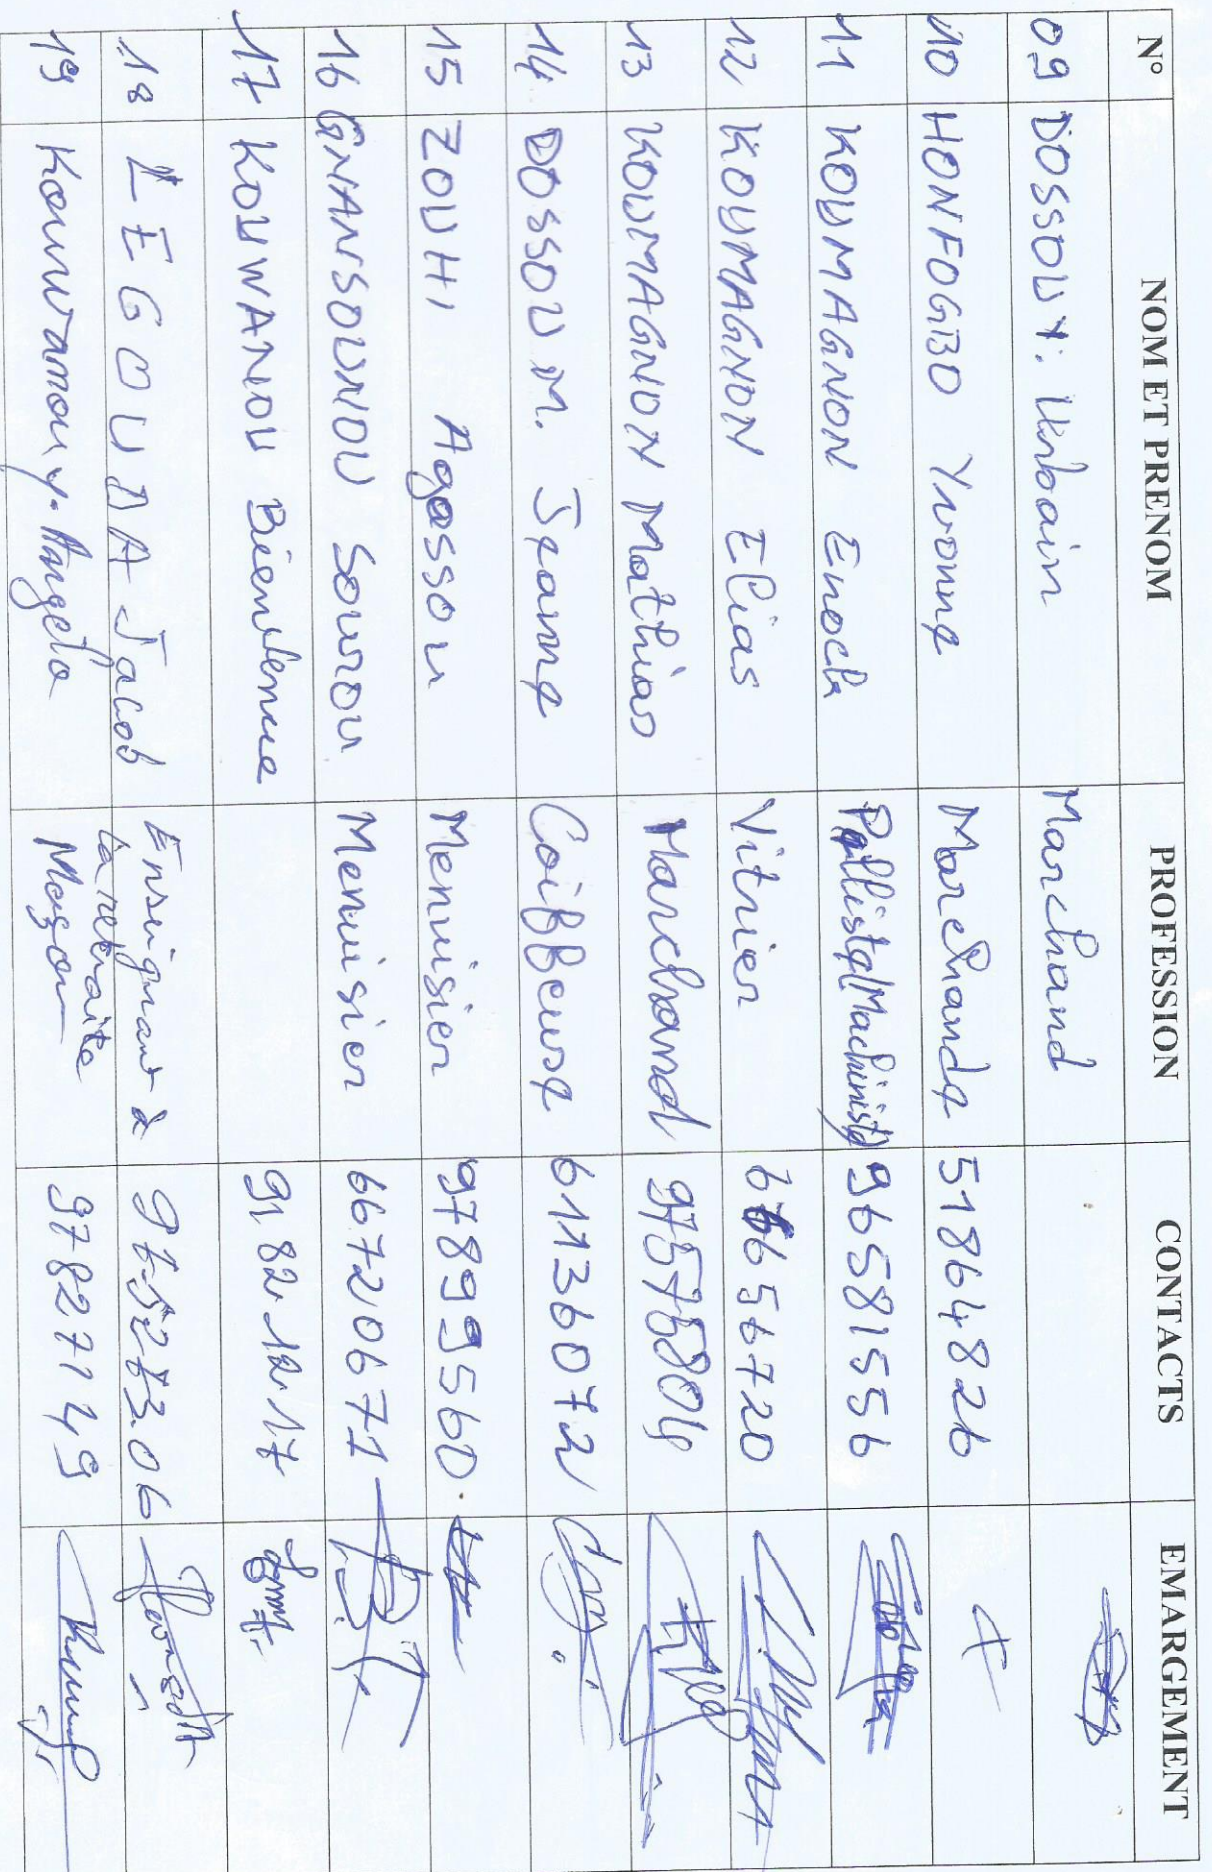 N° NOM ET PRENOM PROFESSION CONTACTS EMARGEMENT
09 DOSSOU Y. Urbain Marchand
10 HONFOGBO Yvonne Marchande 51864826
11 KOUMAGNON Enoch (Machiniste) 96581556
12 KOUMAGNON Elias Vitrier 66656720
13 KOUMAGNON Mathias Marchand 97575804
14 DOSSOU M. Jeanne Coiffeuse 61136072
15 ZOUHI Agossou Menuisier 97899560.
16 GNANSOUNOU Sourou Menuisier 66720671
17 KOUWANOU Bienvenue 91.82.12.17
18 LEGOUDA Jacob Enseignant à la retraite 06
19 Kouwanou y. Angelo Maçon 97827149